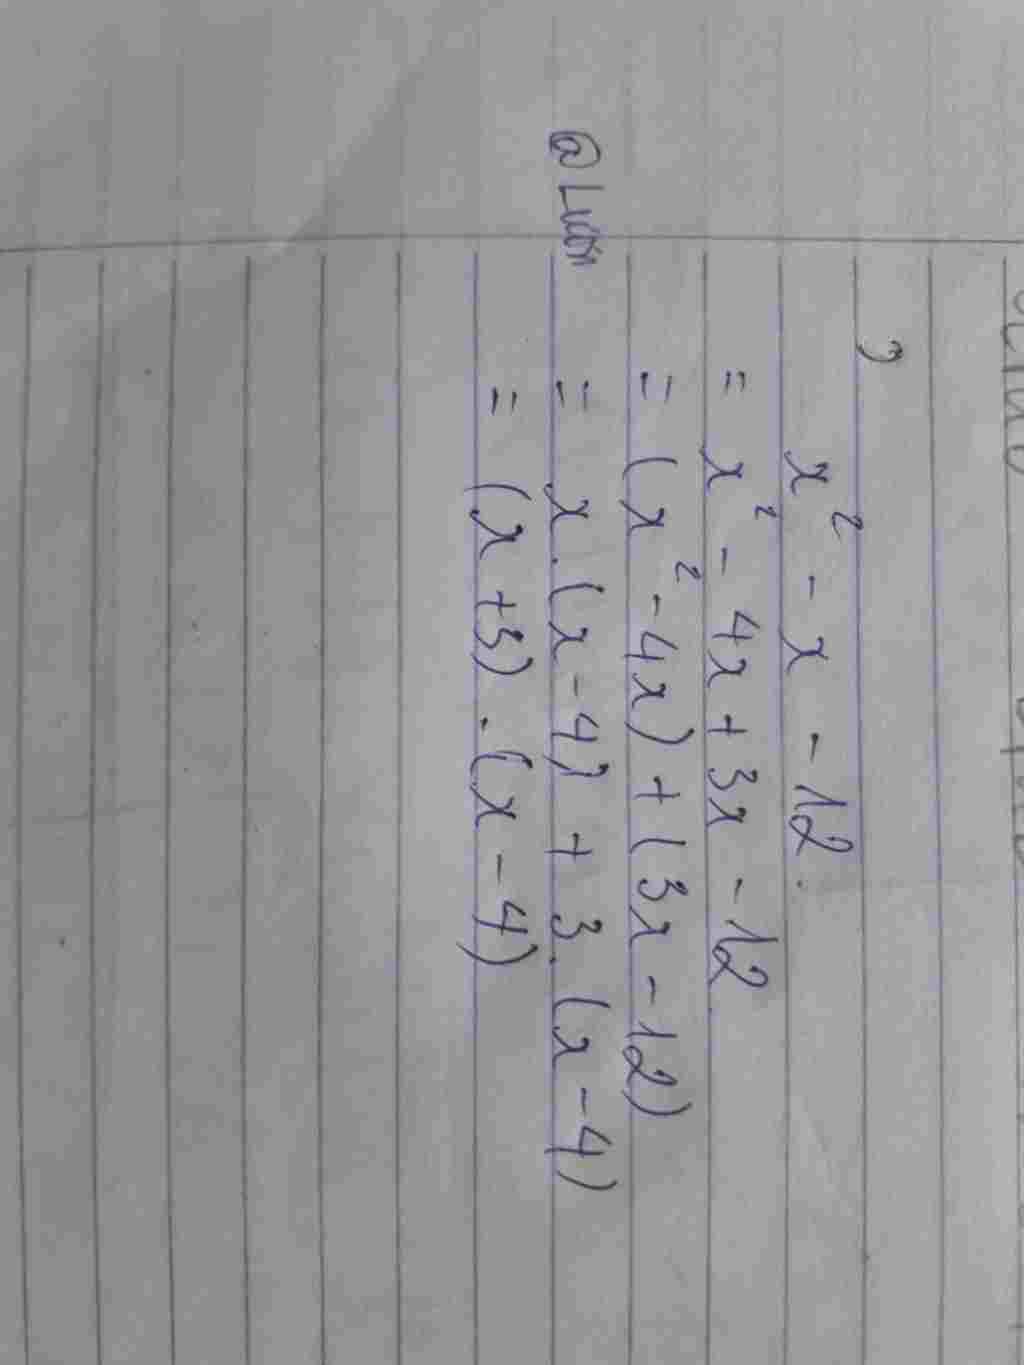 x² - x - 12.
= x² - 4x + 3x - 12
= (x² - 4x) + (3x - 12)
= x.(x - 4) + 3.(x - 4)
= (x + 3).(x - 4)